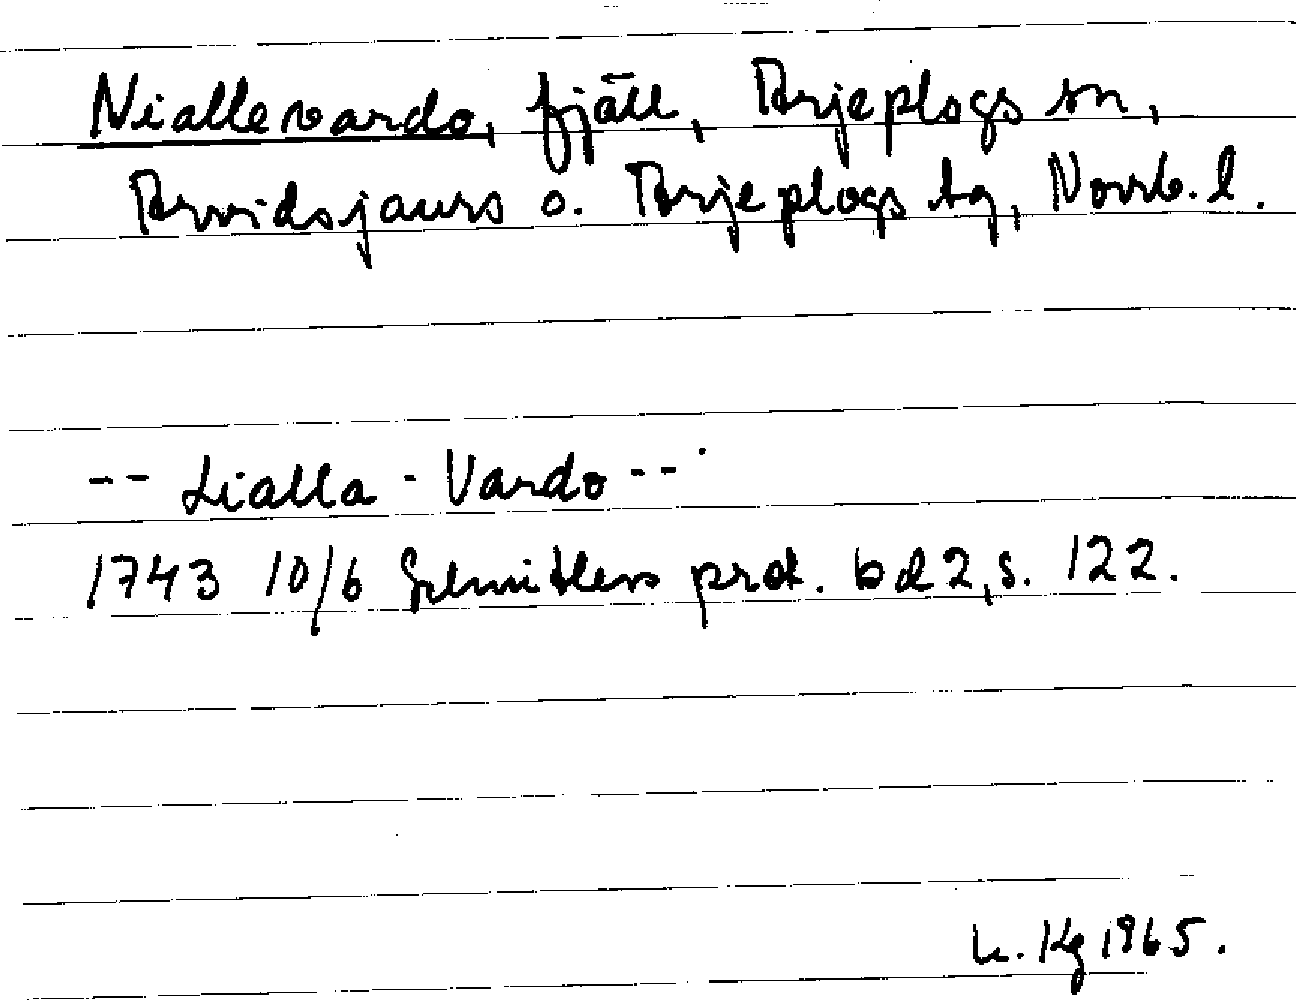 Niallevardo, fjäll, Arjeplogs sn,
Arvidsjaurs o. Arjeplogs tg, Norrb. l.
-- Lialla - Vardo --
1743 10/6 Schnitlers prot. bd 2, s. 122.
Kg 1965.